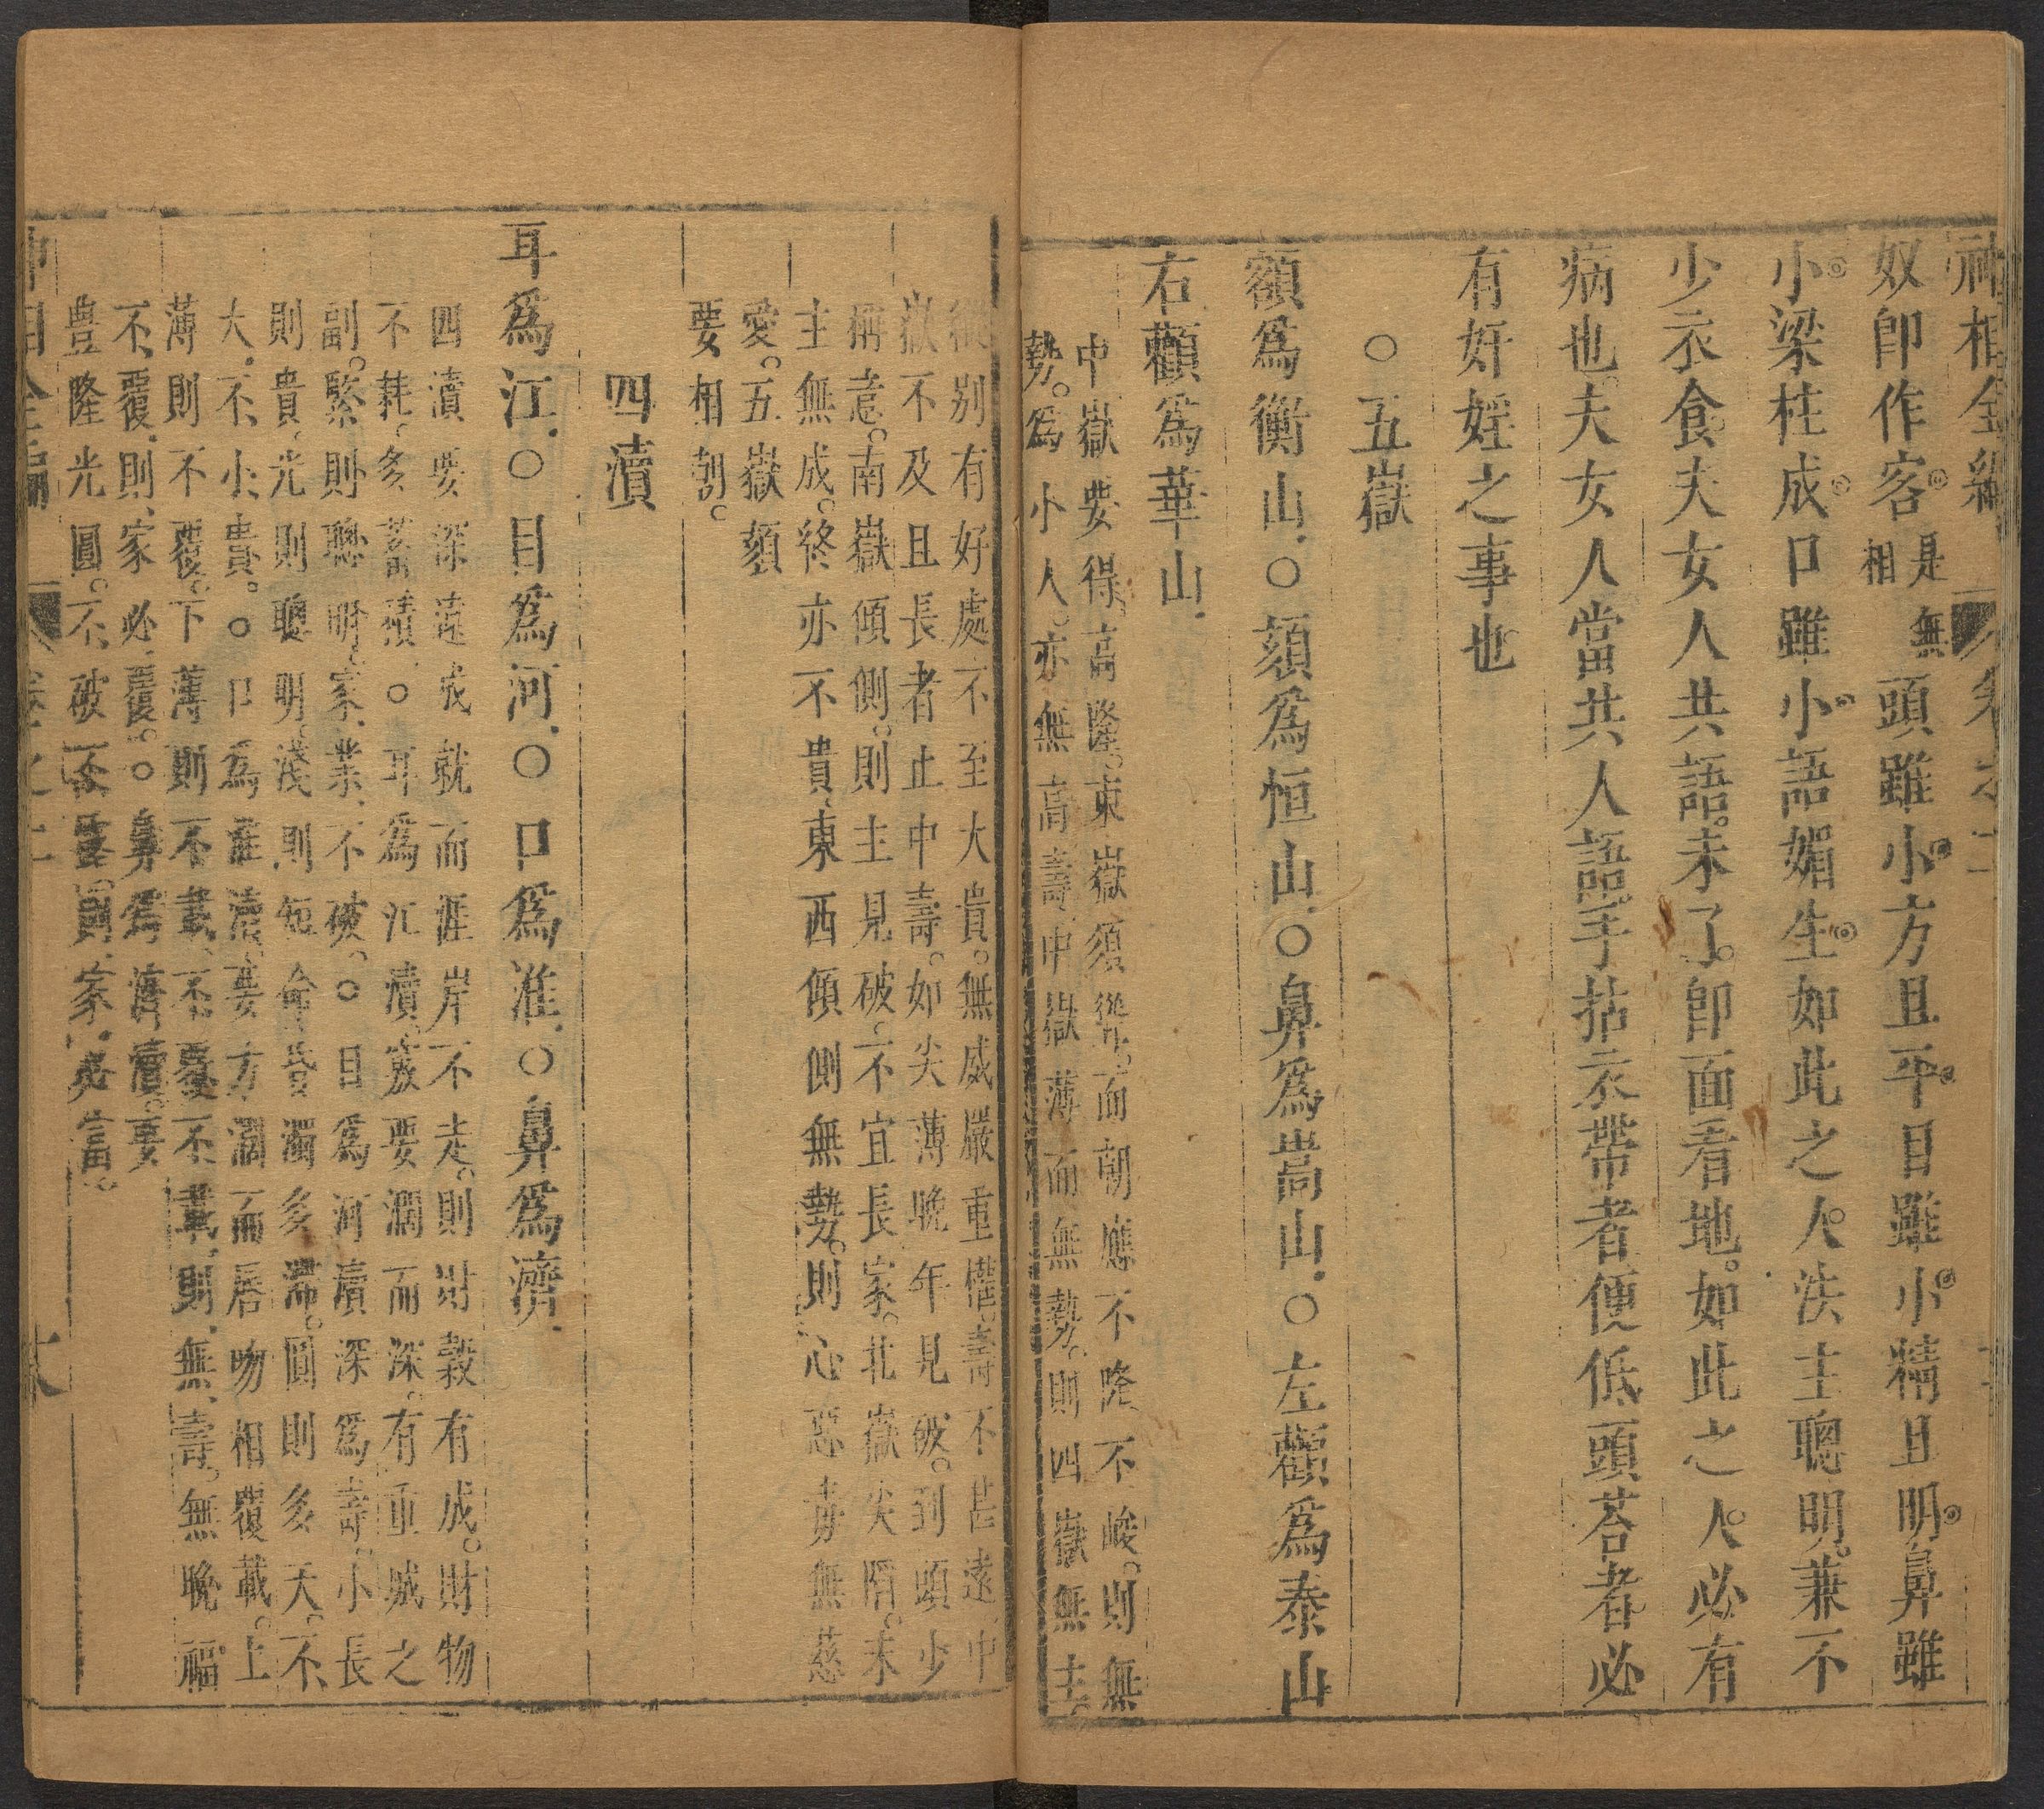 神相全編 卷之二
奴即作客是無相頭雖小方且平目雖小精且明鼻雖
小梁柱成口雖小語媚生如此之人法主聰明兼不
少衣食夫女人共語未了即面看地如此之人必有
病也夫女人當共人語手拈衣帶者便低頭荅者必
有奸婬之事也
○五嶽
額爲衡山○頦爲恒山○鼻爲嵩山○左顴爲泰山
右顴爲華山
中嶽要得高隆東嶽須聳而朝應不隆不峻則無
勢爲小人亦無高壽中嶽薄而無勢則四嶽無主
縱别有好處不至大貴無威嚴重權壽不甚遠中
嶽不及且長者止中壽如尖薄晚年見破到頭少
稱意南嶽傾側則主見破不宜長家北嶽尖陷末
主無成終亦不貴東西傾側無勢則心惡毒無慈
愛五嶽頦
要相朝
四瀆
耳爲江○目爲河○口爲淮○鼻爲濟
四瀆要深遠成就而涯岸不走則財穀有成財物
不耗多蓄積○耳爲江瀆竅要濶而深有重城之
副緊則聰明家業不破○目爲河瀆深爲壽小長
則貴光則聰明淺則短命昏濁多滯圓則多夭不
大不小貴○口爲淮瀆要方濶而唇吻相覆載上
薄則不覆下薄則不載不覆不載則無壽無晚福
不覆則家必覆○鼻爲濟瀆要
豊隆光圓不破不露則家必富
神相全編 卷之二